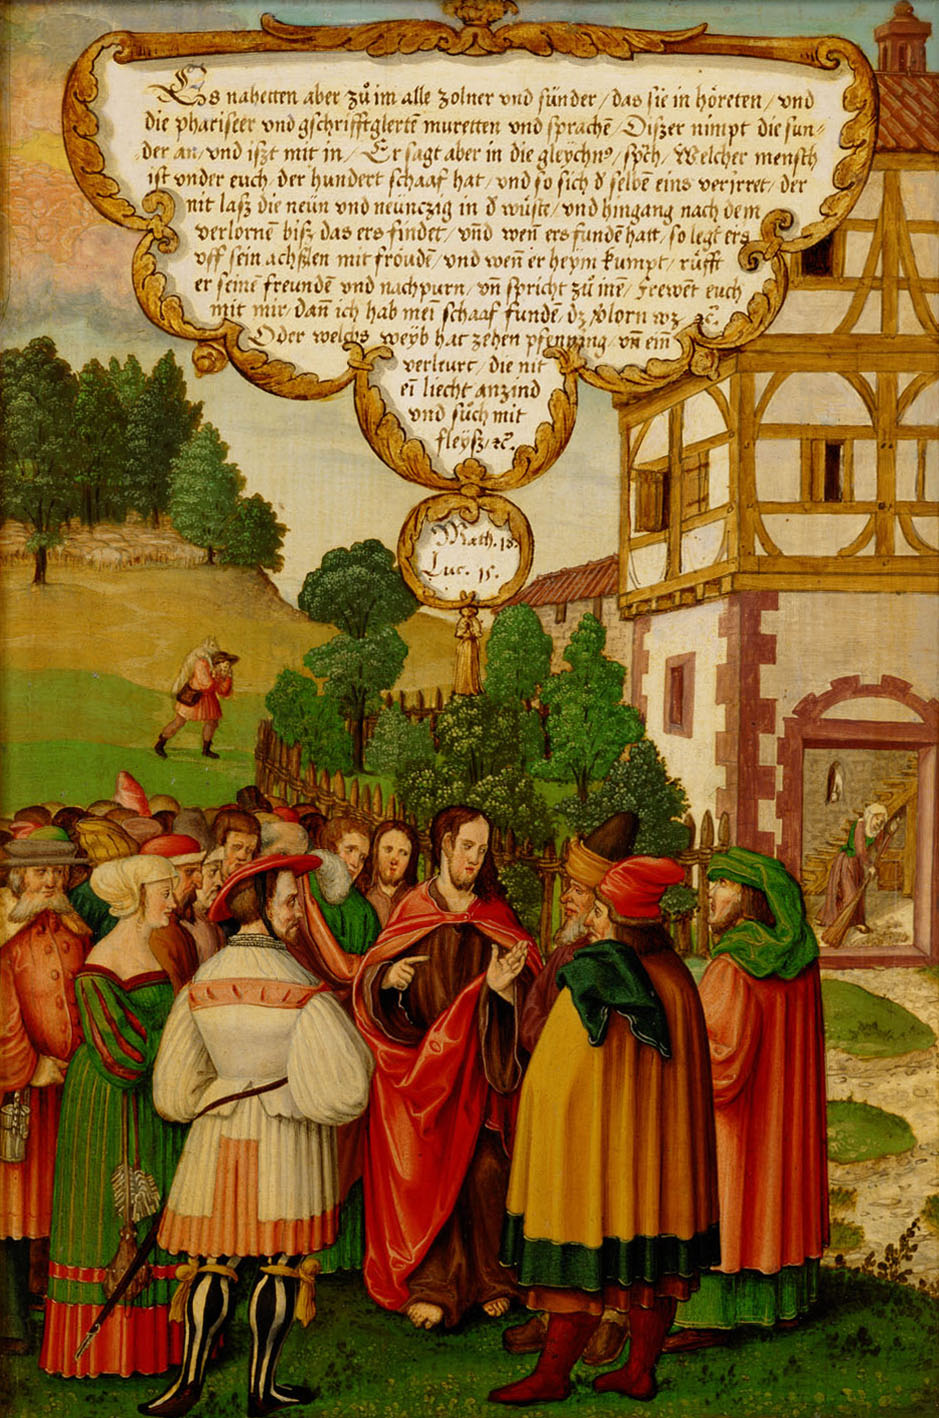 Es nahetten aber zů im alle zolner vnd sünder / das sie in hŏreten / vnd
die phariseer vnd gschrifftglertẽ muretten vnd sprachẽ / Diszer nimpt die sun⸗
der an / vnd iszt mit in / Er sagt aber in die gleÿchnꝰ / spch / Welcher mensch
ist vnder euch / der hundert schaaf hat / vnd so sich d̕ selbẽ eins verirret / der
nit lasz die neün vnd neünczig in d̕ wůste / vnd hingang nach dem
verlornẽ bisz das ers findet / vñd weñ ers funden hatt / so legt ers
vff sein achszlen mit froudẽ / vnd weñ er heym kumpt / růfft
er seinẽ freundẽ vnd nachpurn / vñ spricht zů inẽ / Frewẽt euch
mit mir / dañ ich hab meĩ schaaf fundẽ / dz v̕lorn wz ꝛc̃.
Oder welchs weÿb hat zehen pfenning / vñ eiñ
verleurt / die nit
eĩ liecht anzind
vnd sůch mit
fleÿsz / ꝛc̃.
Math. 18.
Luc. 15.